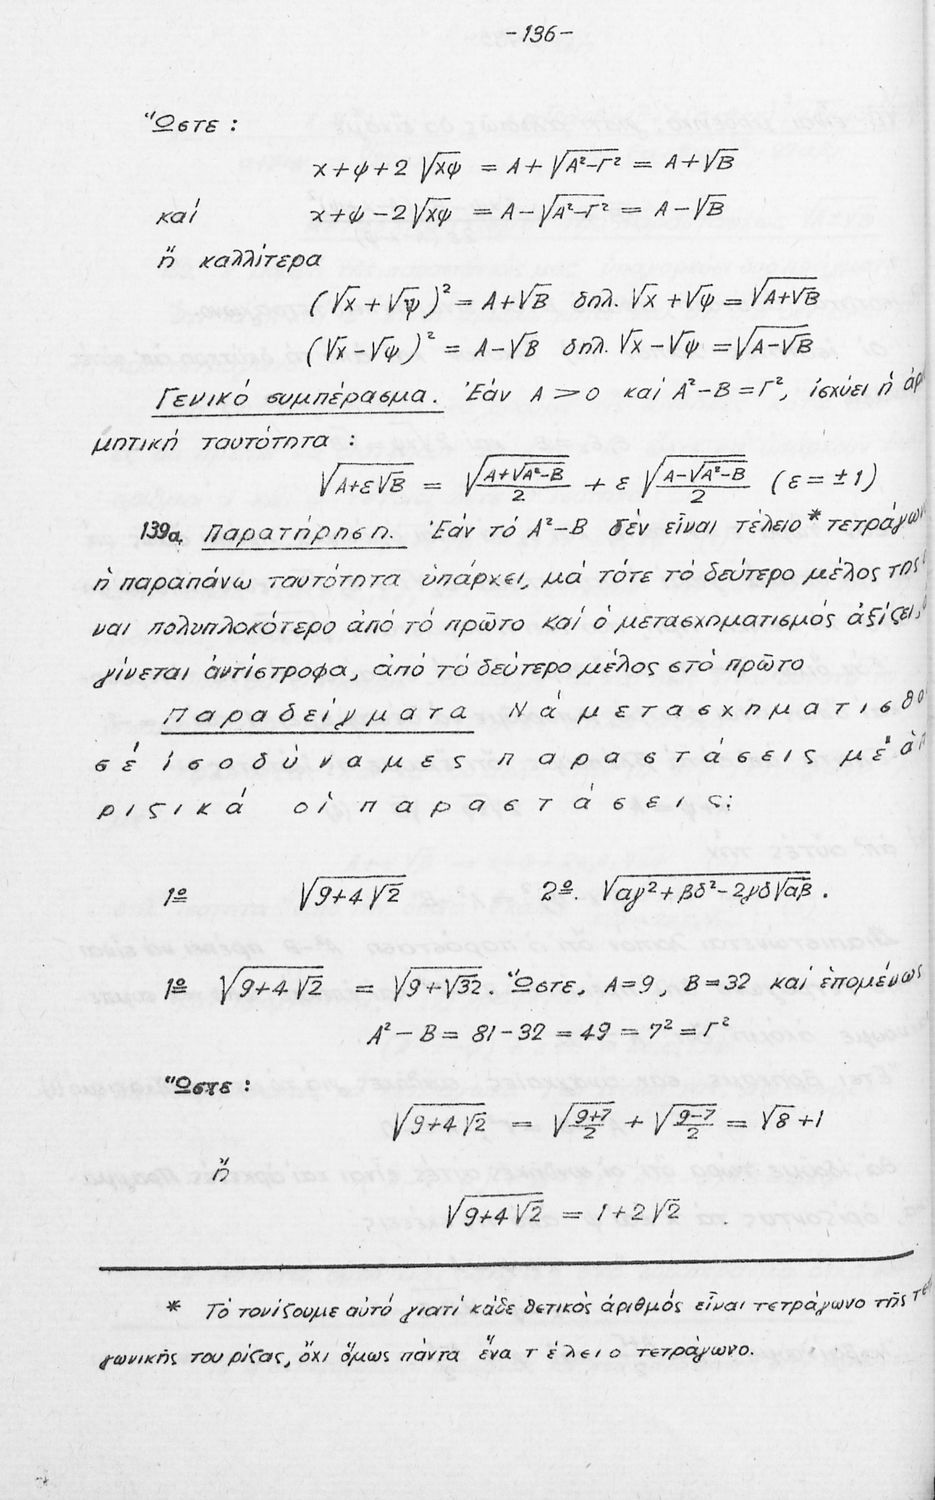 -136-
Ὥστε :
χ+ψ+2√χψ = Α+√Α²-Γ² = Α+√Β
καί χ+ψ-2√χψ = Α-√Α²-Γ² = Α-√Β
ἤ καλλίτερα
(√χ+√ψ)² = Α+√Β δηλ. √χ+√ψ = √Α+√Β
(√χ-√ψ)² = Α-√Β δηλ. √χ-√ψ = √Α-√Β
Γενικό συμπέρασμα. Ἐάν Α>0 καί Α²-Β=Γ², ἰσχύει ἡ ἀρ
μητική ταυτότητα :
√Α+ε√Β = √(Α+√Α²-Β)/2 + ε √(Α-√Α²-Β)/2 (ε=±1)
139α. Παρατήρηση. Ἐάν τό Α²-Β δέν εἶναι τέλειο* τετράγων
ἡ παραπάνω ταυτότητα ὑπάρχει, μά τότε τό δεύτερο μέλος της
ναι πολυπλοκότερο ἀπό τό πρῶτο καί ὁ μετασχηματισμός ἀξίζει,
γίνεται ἀντίστροφα, ἀπό τό δεύτερο μέλος στό πρῶτο
Παραδείγματα Νά μετασχηματισθο
σέ ἰσοδύναμες παραστάσεις μέ ἁπ
ριζικά οἱ παραστάσεις:
1º √9+4√2 2º. √αγ²+βδ²-2γδ√αβ .
1º √9+4√2 = √9+√32. Ὥστε, Α=9, Β=32 καί ἑπομένως
Α²-Β= 81-32 = 49 = 7² = Γ²
Ὥστε :
√9+4√2 = √(9+7)/2 + √(9-7)/2 = √8+1
ἤ
√9+4√2 = 1+2√2
* Τό τονίζουμε αὐτό γιατί κάθε θετικός ἀριθμός εἶναι τετράγωνο τῆς τε
γωνικῆς του ρίζας, ὄχι ὅμως πάντα ἕνα τέλειο τετράγωνο.